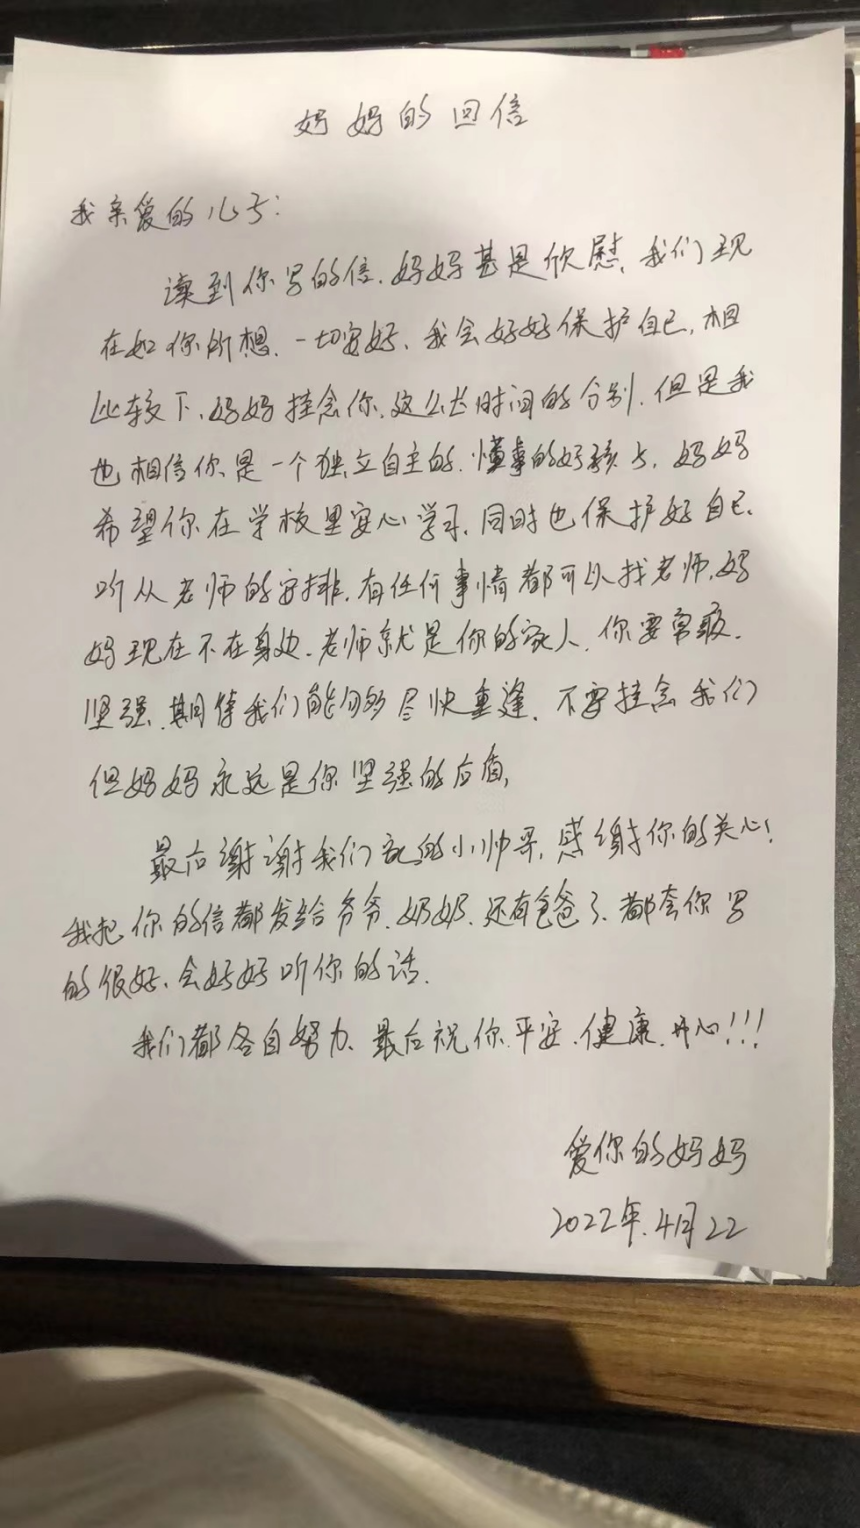 妈妈的回信
我亲爱的儿子:
读到你写的信.妈妈甚是欣慰.我们现
在如你所想.一切安好、我会好好保护自己.相
比较下、妈妈挂念你.这么长时间的分别.但是我
也相信你是一个独立自主的.懂事的好孩子.妈妈
希望你在学校里安心学习.同时也保护好自己.
听从老师的安排.有任何事情都可以找老师.妈
妈现在不在身边.老师就是你的家人.你要勇敢.
坚强.期待我们能够尽快重逢.不要挂念我们
但妈妈永远是你坚强的后盾,
最后谢谢我们家的小帅哥,感谢你的关心!
我把你的信都发给爷爷.奶奶.还有爸爸了.都夸你写
的很好、会好好听你的话.
我们都各自努力、最后祝你.平安.健康.开心!!!
爱你的妈妈
2022年.4月22